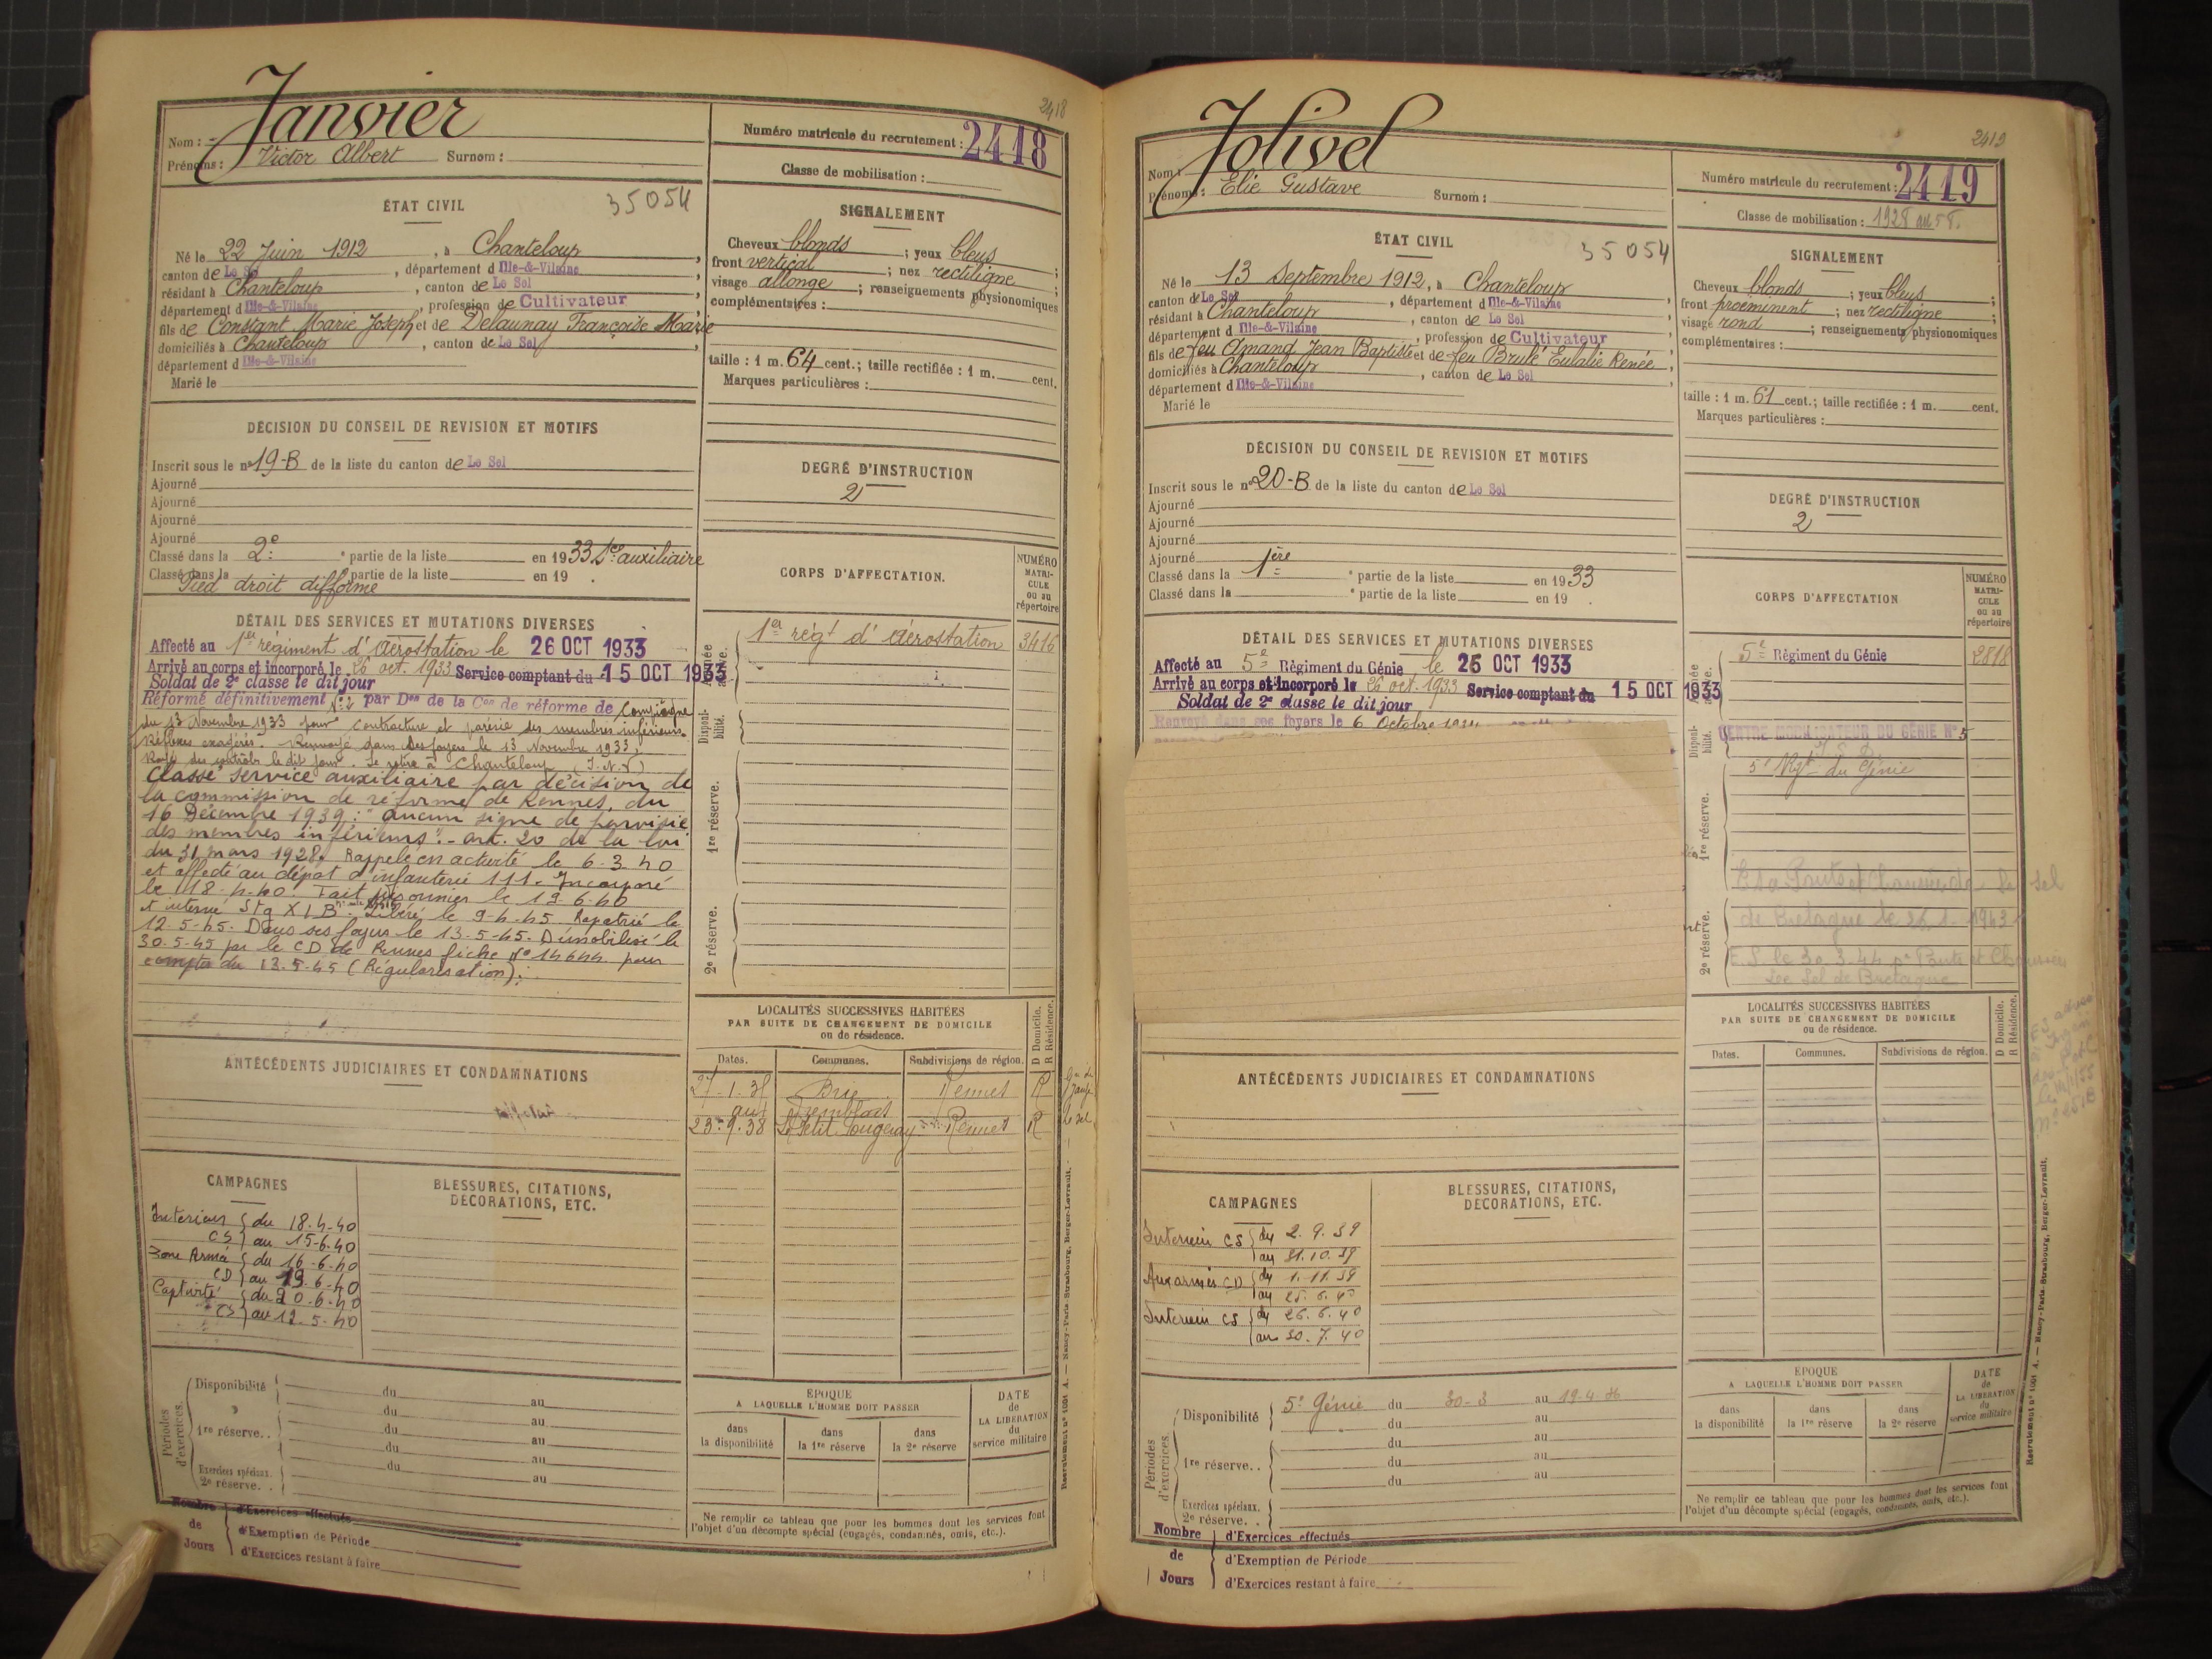 2418
Janvier
Nom :
Prénoms : Victor Albert Surnom :
Numéro matricule du recrutement : 2418
Classe de mobilisation :
ÉTAT CIVIL
35054
Né le 22 Juin 1912, à Chanteloup,
canton de Le Sel, département d Ille-&-Vilaine
résidant à Chanteloup, canton de Le Sel,
département d Ille-&-Vilaine, profession de Cultivateur
fils de Constant Marie Joseph et de Delaunay Françoise Marie
domiciliés à Chanteloup, canton de Le Sel,
département d Ille-&-Vilaine
Marié le
SIGNALEMENT
Cheveux blonds ; yeux bleus ;
front vertical ; nez rectiligne ;
visage allongé ; renseignements physionomiques
complémentaires :
taille : 1 m. 64 cent.; taille rectifiée : 1 m. cent.
Marques particulières :
DÉCISION DU CONSEIL DE REVISION ET MOTIFS
Inscrit sous le n° 19-B de la liste du canton de Le Sel
Ajourné
Ajourné
Ajourné
Ajourné
Classé dans la 2e partie de la liste en 1933 Sce auxiliaire
Classé dans la partie de la liste en 19 .
Pied droit difforme
DEGRÉ D'INSTRUCTION
2
DÉTAIL DES SERVICES ET MUTATIONS DIVERSES
Affecté au 1er régiment d'Aérostation le 26 OCT 1933
Arrivé au corps et incorporé le 26 oct. 1933 Service comptant du 15 OCT 1933
Soldat de 2e classe le dit jour
Réformé définitivement N°2 par Don de la Con de réforme de Compiègne
du 13 Novembre 1933 pour contracture et parésie des membres inférieurs
Réflexes exagérés. Renvoyé dans ses foyers le 13 Novembre 1933.
Rayé des contrôles le dit jour. Se retire à Chanteloup (I.-&-V.)
Classé service auxiliaire par décision de
la commission de réforme de Rennes, du
16 Décembre 1939 : "aucun signe de parvisie
des membres inférieurs". - art. 20 de la loi
du 31 mars 1928. Rappelé en activité le 6.3.40
et affecté au dépôt d'infanterie 111. Incorporé
le 18-4-40 Fait prisonnier le 19-6-40
et interné Stg XI B. Libéré le 9-4-45 Rapatrié le
12.5-45. Dans ses foyers le 13.5-45. Démobilisé le
30.5-45 par le CD de Rennes fiche n° 14644 pour
compter du 13.5.45 (Régularisation).
CORPS D'AFFECTATION.
NUMÉRO MATRICULE ou au répertoire
Armée active.
1er régt d'Aérostation 3416
Disponibilité.
1re réserve.
2e réserve.
LOCALITÉS SUCCESSIVES HABITÉES
PAR SUITE DE CHANGEMENT DE DOMICILE
ou de résidence.
Dates. Communes. Subdivisions de région. D Domicile. R Résidence.
Brie Rennes R
23.9.38 Le Petit Rennes R
ANTÉCÉDENTS JUDICIAIRES ET CONDAMNATIONS
CAMPAGNES
Intérieur CS du 18.4-40
au 15-6-40
Zone Armée CD du 16-6-40
au 19-6-40
Captivité CS du 20-6-40
au 12-5-40
BLESSURES, CITATIONS,
DÉCORATIONS, ETC.
Périodes d'exercices.
Disponibilité du au
du au
1re réserve. . du au
du au
Exercices spéciaux. du au
2e réserve. .
ÉPOQUE
A LAQUELLE L'HOMME DOIT PASSER
dans la disponibilité
dans la 1re réserve
dans la 2e réserve
DATE de LA LIBÉRATION du service militaire
Ne remplir ce tableau que pour les hommes dont les services font
l'objet d'un décompte spécial (engagés, condamnés, omis, etc.).
Nombre de Jours
d'Exercices effectués
d'Exemption de Période
d'Exercices restant à faire
Recrutement n° 1001 A. — Nancy-Paris-Strasbourg, Berger-Levrault.
2419
Jolivel
Nom :
Prénoms : Elie Gustave Surnom :
Numéro matricule du recrutement : 2419
Classe de mobilisation : 1928
ÉTAT CIVIL
35054
Né le 13 Septembre 1912, à Chanteloup
canton de Le Sel, département d Ille-&-Vilaine
résidant à Chanteloup, canton de Le Sel
département d Ille-&-Vilaine, profession de Cultivateur
fils de feu Amand Jean Baptiste et de feu Brulé Eulalie Renée,
domiciliés à Chanteloup, canton de Le Sel
département d Ille-&-Vilaine
Marié le
SIGNALEMENT
Cheveux blonds ; yeux bleus ;
front proéminent ; nez rectiligne ;
visage rond ; renseignements physionomiques
complémentaires :
taille : 1 m. 61 cent.; taille rectifiée : 1 m. cent.
Marques particulières :
DÉCISION DU CONSEIL DE REVISION ET MOTIFS
Inscrit sous le n° 20-B de la liste du canton de Le Sel
Ajourné
Ajourné
Ajourné
Ajourné
Classé dans la 1ère partie de la liste en 1933
Classé dans la partie de la liste en 19 .
DEGRÉ D'INSTRUCTION
2
DÉTAIL DES SERVICES ET MUTATIONS DIVERSES
Affecté au 5e Régiment du Génie le 26 OCT 1933
Arrivé au corps et incorporé le 26 oct. 1933 Service comptant du 15 OCT 1933
Soldat de 2e classe le dit jour
Renvoyé dans ses foyers le 6 Octobre 1934
CORPS D'AFFECTATION
NUMÉRO MATRICULE ou au répertoire
Armée active.
5e Régiment du Génie 2818
Disponibilité.
CENTRE MOBILISATEUR DU GÉNIE N° 5
5e Régt du Génie
1re réserve.
Ponts et Le Sel
de Bretagne le 26.1.1943
2e réserve.
E.S. le 30.3.44 Ponts et Chaussées
Le Sel de Bretagne
LOCALITÉS SUCCESSIVES HABITÉES
PAR SUITE DE CHANGEMENT DE DOMICILE
ou de résidence.
Dates. Communes. Subdivisions de région. D Domicile. R Résidence.
ANTÉCÉDENTS JUDICIAIRES ET CONDAMNATIONS
CAMPAGNES
Intérieur CS du 2.9.39
au 31.10.39
Aux armées CD du 1.11.39
au 25.6.40
Intérieur CS du 26.6.40
au 30.7.40
BLESSURES, CITATIONS,
DÉCORATIONS, ETC.
Périodes d'exercices.
Disponibilité 5e Génie du 30-3 au 19-4-36
du au
1re réserve. . du au
du au
du au
Exercices spéciaux.
2e réserve. .
ÉPOQUE
A LAQUELLE L'HOMME DOIT PASSER
dans la disponibilité
dans la 1re réserve
dans la 2e réserve
DATE de LA LIBÉRATION du service militaire
Ne remplir ce tableau que pour les hommes dont les services font
l'objet d'un décompte spécial (engagés, condamnés, omis, etc.).
Nombre de Jours
d'Exercices effectués
d'Exemption de Période
d'Exercices restant à faire
Recrutement n° 1001 A. — Nancy-Paris-Strasbourg, Berger-Levrault.